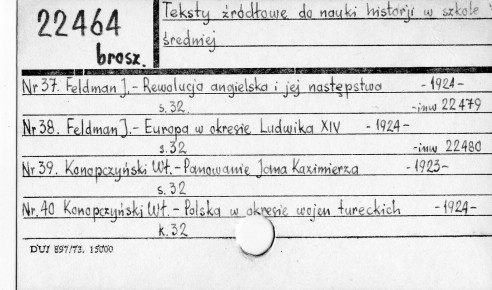 22464
brosz.
Teksty źródłowe do nauki historji w szkole
średniej
Nr 37. Feldman J. - Rewolucja angielska i jej następstwa -1924-
s. 32 -inw 22479
Nr 38. Feldman J. - Europa w okresie Ludwika XIV -1924-
s. 32 -inw 22480
Nr 39. Konopczyński Wł. - Panowanie Jana Kazimierza -1923-
s. 32
Nr. 40 Konopczyński Wł. - Polska w okresie wojen tureckich -1924-
k. 32
DUJ 897/73. 15000